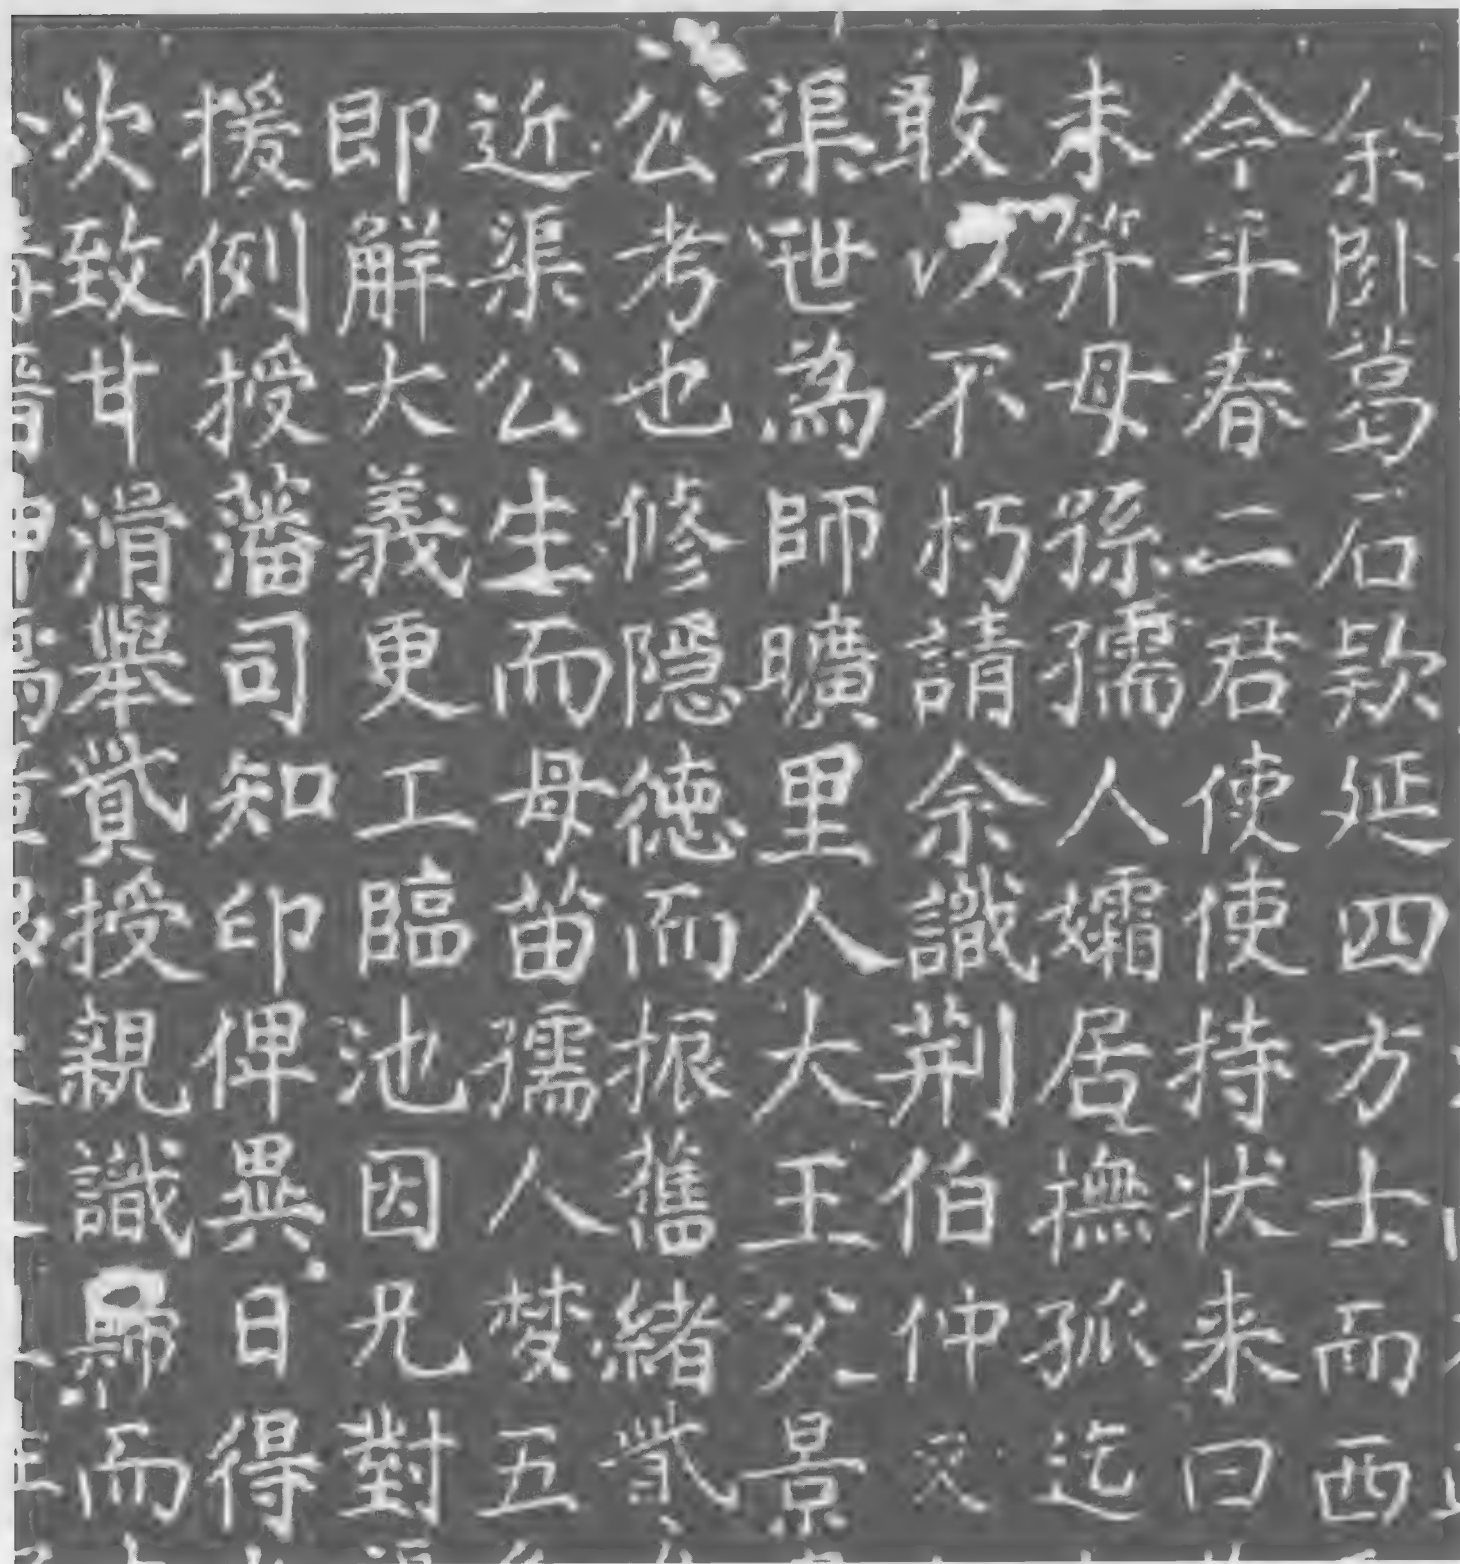 余卧葛石款延四方士而西
今年春二君使使持状来曰
未笄母孫孺人孀居撫孤迄
敢以不朽請余識荆伯仲交
渠世為師曠里人大王父景
公考也修隠徳而振舊緒貳
近渠公生而母苗孺人棼五
即解大義更工臨池因凡對
援例授藩司知印俾異日得
次致甘滑舉貳授親識歸而